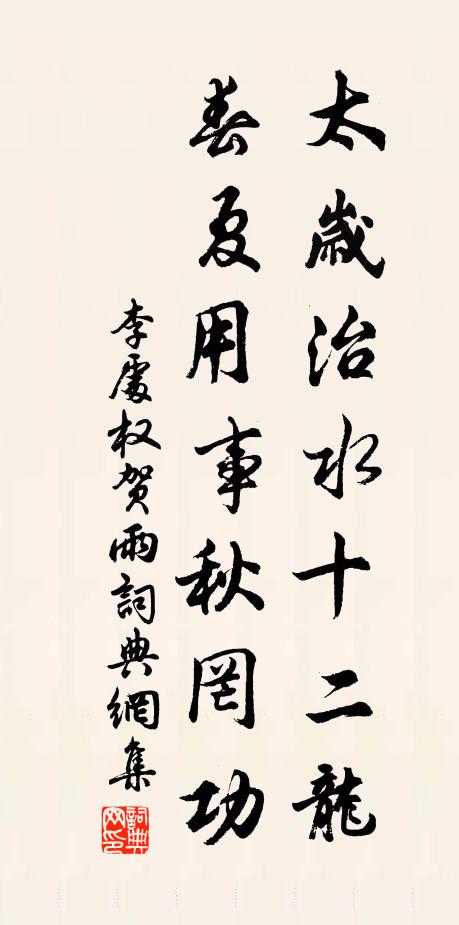 太歲治水十二龍
春夏用事秋罔功
李處权贺雨詞典網集
詞典网印